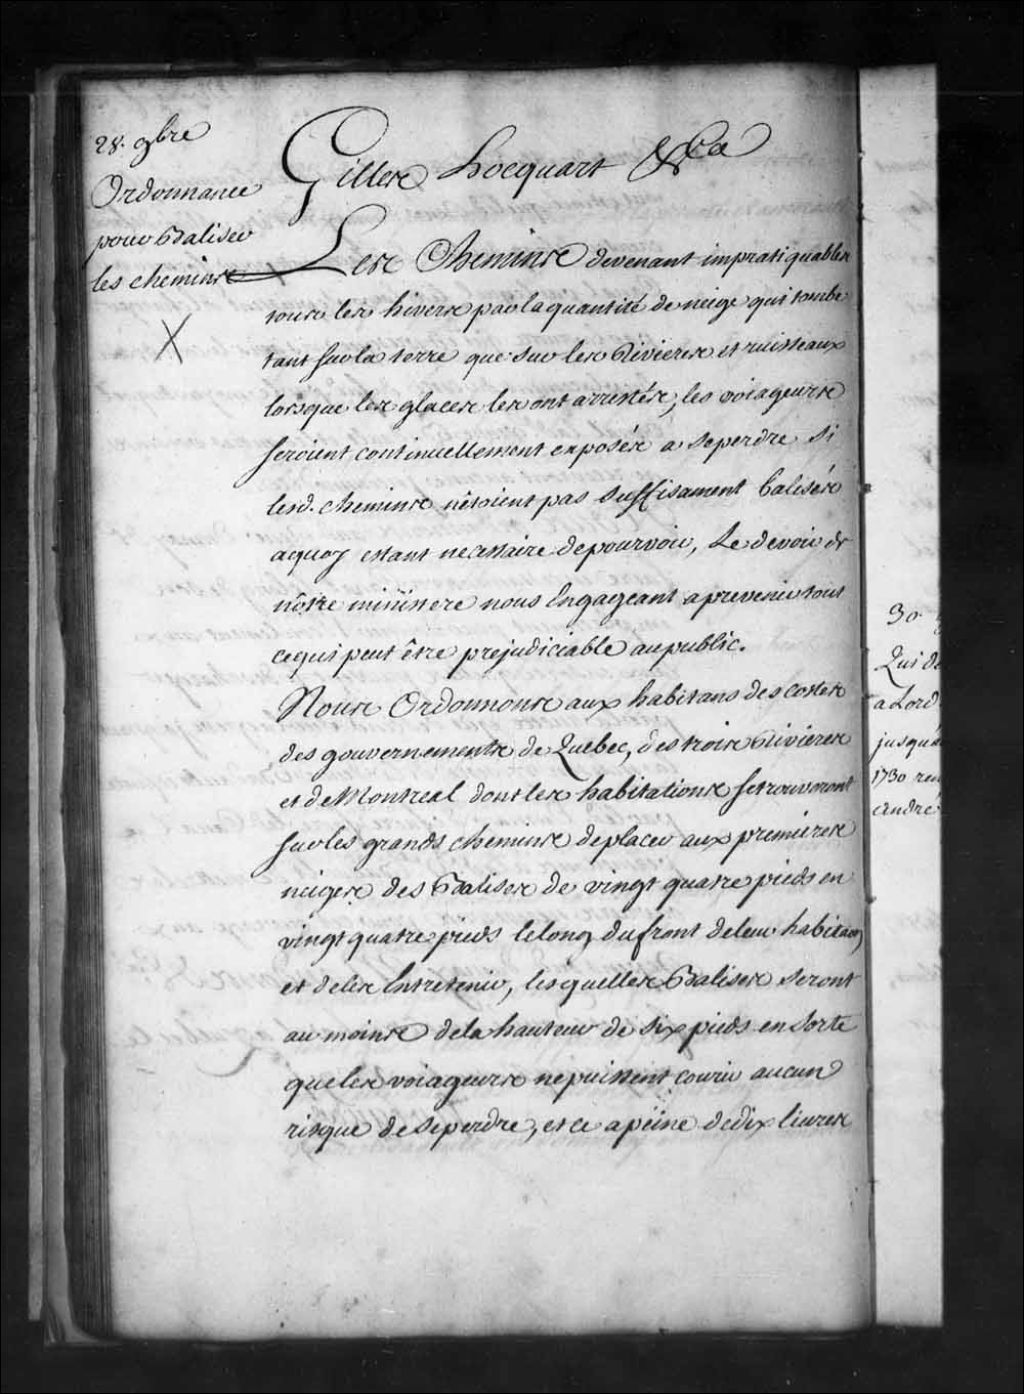 28. 9bre
Ordonnance
pour Baliser
les chemins
Gilles hocquart &ca
Les Chemins devenant impratiquables
tous les hivers par la quantité de neige qui tombe
tant sur la terre que sur les Rivieres et ruisseaux
lorsque les glaces les ont arrestés, les voiageurs
seroient continuellement exposés a se perdre si
lesd. chemins n'etoient pas suffisament balisés
a quoy estant necessaire de pourvoir, Le devoir de
nôtre ministere nous Engageant a prevenir tout
ce qui peut être prejudiciable au public.
Nous Ordonnons aux habitans des costes
des gouvernements de Quebec, des trois Rivieres
et de Montreal dont les habitations se trouveront
sur les grands chemins de placer aux premieres
neiges des Balises de vingt quatre pieds en
vingt quatre pieds le long du front de leur habitaon
et de les Entretenir, lesquelles Balises seront
au moins de la hauteur de six pieds en sorte
que les voiageurs ne puissent courir aucun
risque de se perdre, et ce a peine de dix livres
30
Qui de
a Lord
jusqu'a
1730 ren
andré